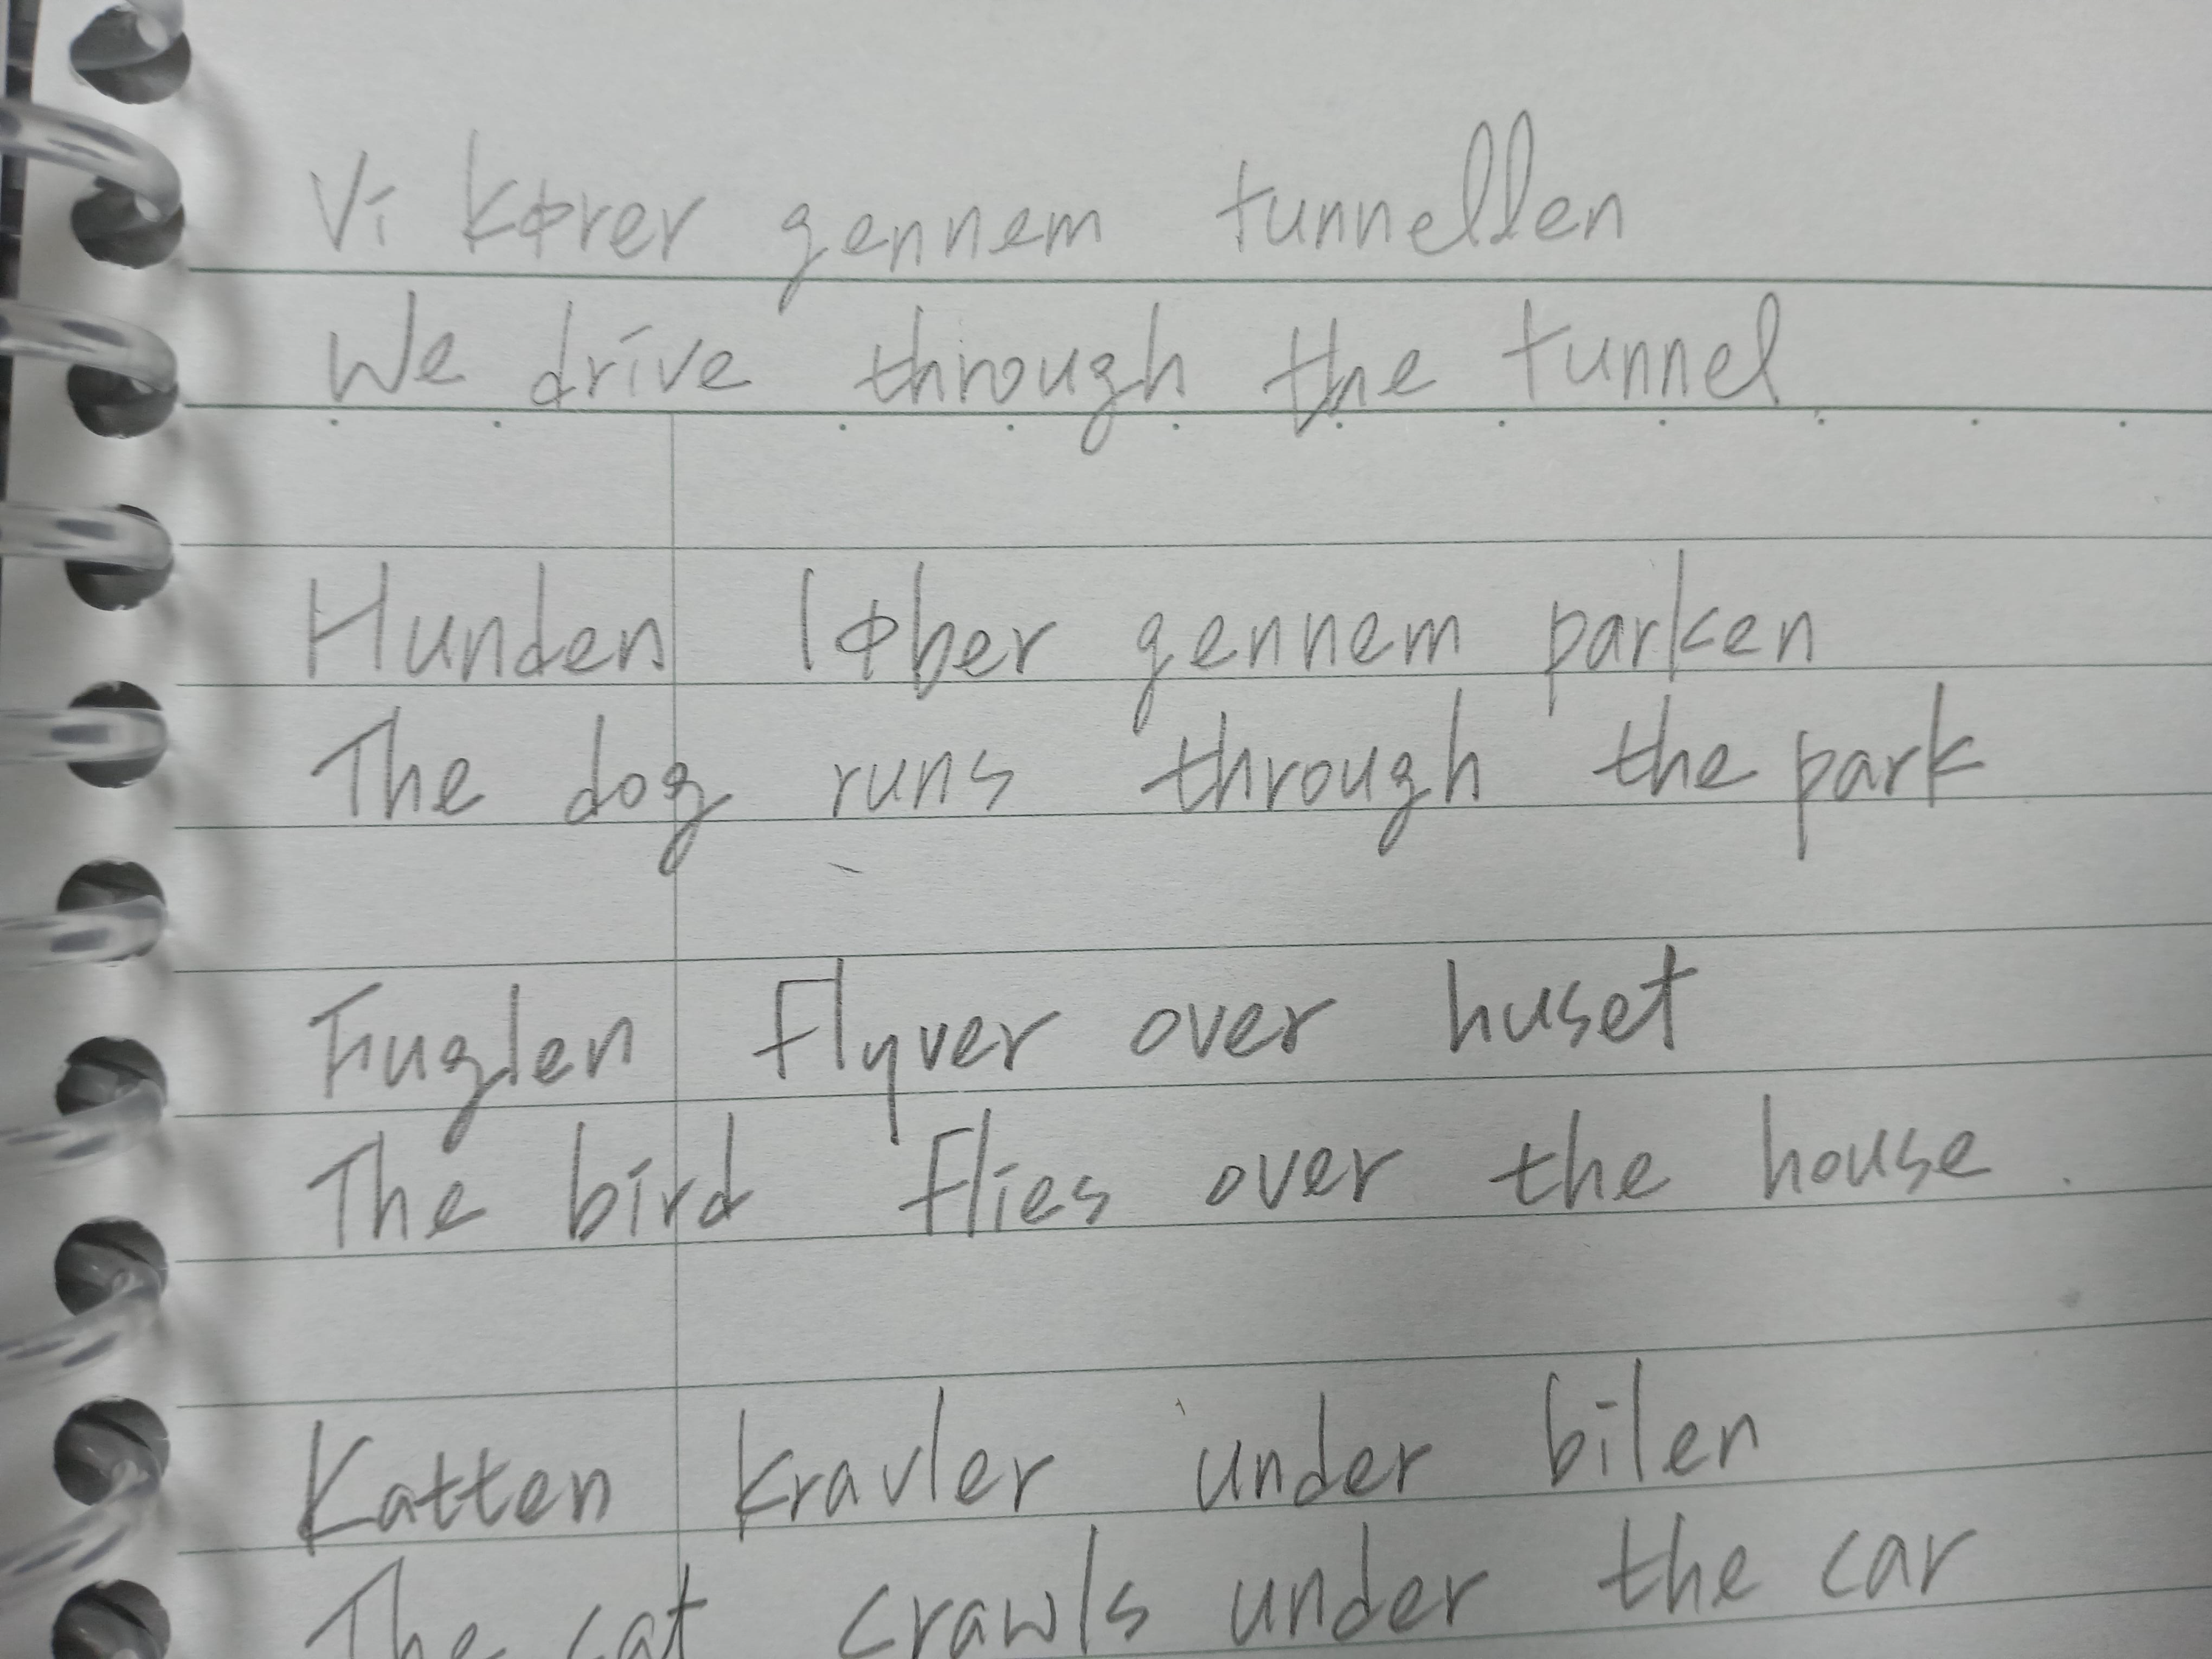 Vi kører gennem tunnellen
We drive through the tunnel
Hunden løber gennem parken
The dog runs through the park
Fuglen flyver over huset
The bird flies over the house.
Katten kravler under bilen
The cat crawls under the car